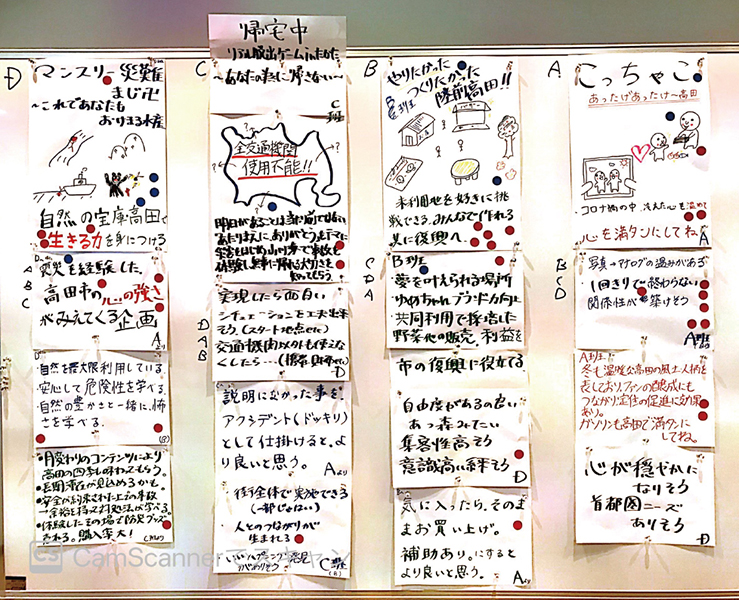 D
マンスリー災難
まじ卍
〜これであなたも
おりまる水産
自然の宝庫高田で
生きる力を身につける
A
B
C
災災を経験した
高田市の心の強さ
がみえてくる企画
A
・自然を最大限利用している。
・安心して危険性を学べる
・自然の豊かさと一緒に、怖
さを学べる。
(B)
・月変わりのコンテンツにより
高田の四季も味わってもらう。
・長期滞在が見込めるかも。
・安全が約束された上での事故
→余裕を持って対処法が学べる
・体験したその場で防災グッズ
売れる。購入率大!
帰宅中
リアル脱出ゲーム
〜あなたの家に帰さない〜
C
C
班
全交通機関
使用不能!!
D
A
B
実現したら面白い
シチュエーションを工夫出来
そう。(スタート地点など)
交通機関以外も使えな
くしたら…
D
説明になかった事を、
アクシデント(ドッキリ)
として仕掛けると、よ
り良いと思う。
Aより
街全体で実施できる
(一部じゃない)
人とのつながりが
生まれる
C班
B
やりたかった
つくりたかった
陸前高田!!
B班
未利用地を好きに挑
戦できる。みんなで作れる
共に復興へ。
C
D
A
B班
・夢を叶えられる場所
・ゆめちゃんブランド力向上
・共同利用で採培した
野菜他の販売、利益を
市の復興に役立てる
自由度があるの良い
あっ森みたい
集客性高そう
意識高い絆そう
D
気に入ったら、そのま
まお買い上げ。
補助あり。にすると
より良いと思う。
Aより
A
こっちゃこ
あったげあったけ〜高田
コロナ禍の中、冷えた心を温めて
心を満タンにしてね
A
B
C
D
写真→アナログの温みがある
・1回きりで終わらない
関係性が築けそう
A班
A班
冬も温暖な高田の風土、人柄を
表しており、ファンの醸成にも
つながり定住の促進に効果
あり。
ガソリンも高田で満タンに
してね。
心が穏やかに
なりそう
首都圏ニーズ
ありそう
D
CS CamScanner